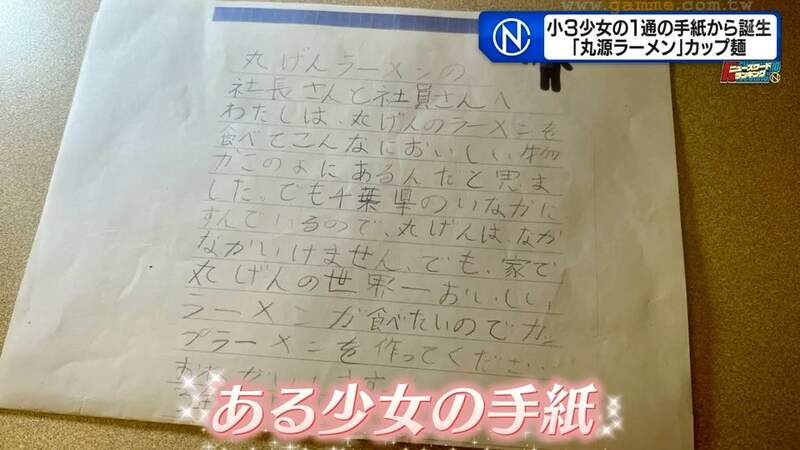 www.gamme.com.tw
小3少女の1通の手紙から誕生
「丸源ラーメン」カップ麺
N
ニュースワード
ランキング
丸げんラーメンの
社長さんと社員さんへ
わたしは、丸げんのラーメンを
食べてこんなにおいしい物
がこのよにあるんだと思ま
した。でも千葉県のいなかに
すんでいるので、丸げんは、なか
なかいけません、でも、家で
丸げんの世界一おいしい
ラーメンが食べたいのでカッ
プラーメンを作ってください
ある少女の手紙